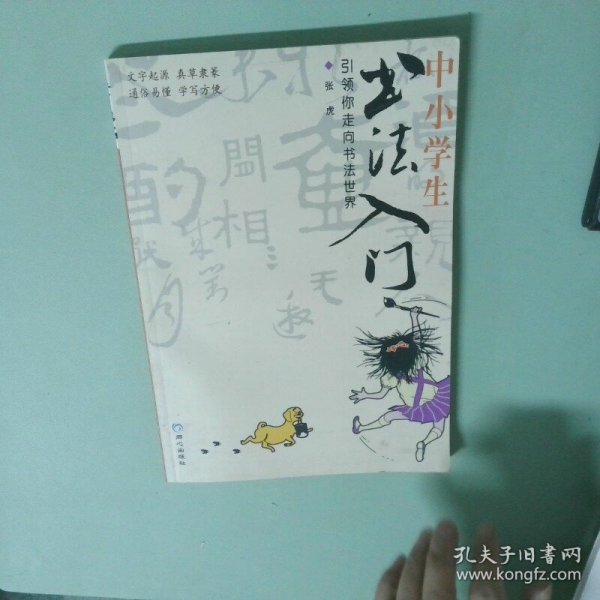 文字起源 真草隶篆
通俗易懂 学写方便
中小学生
书法入门
引领你走向书法世界
张虎
同心出版社
孔夫子旧书网
www.kongfz.com